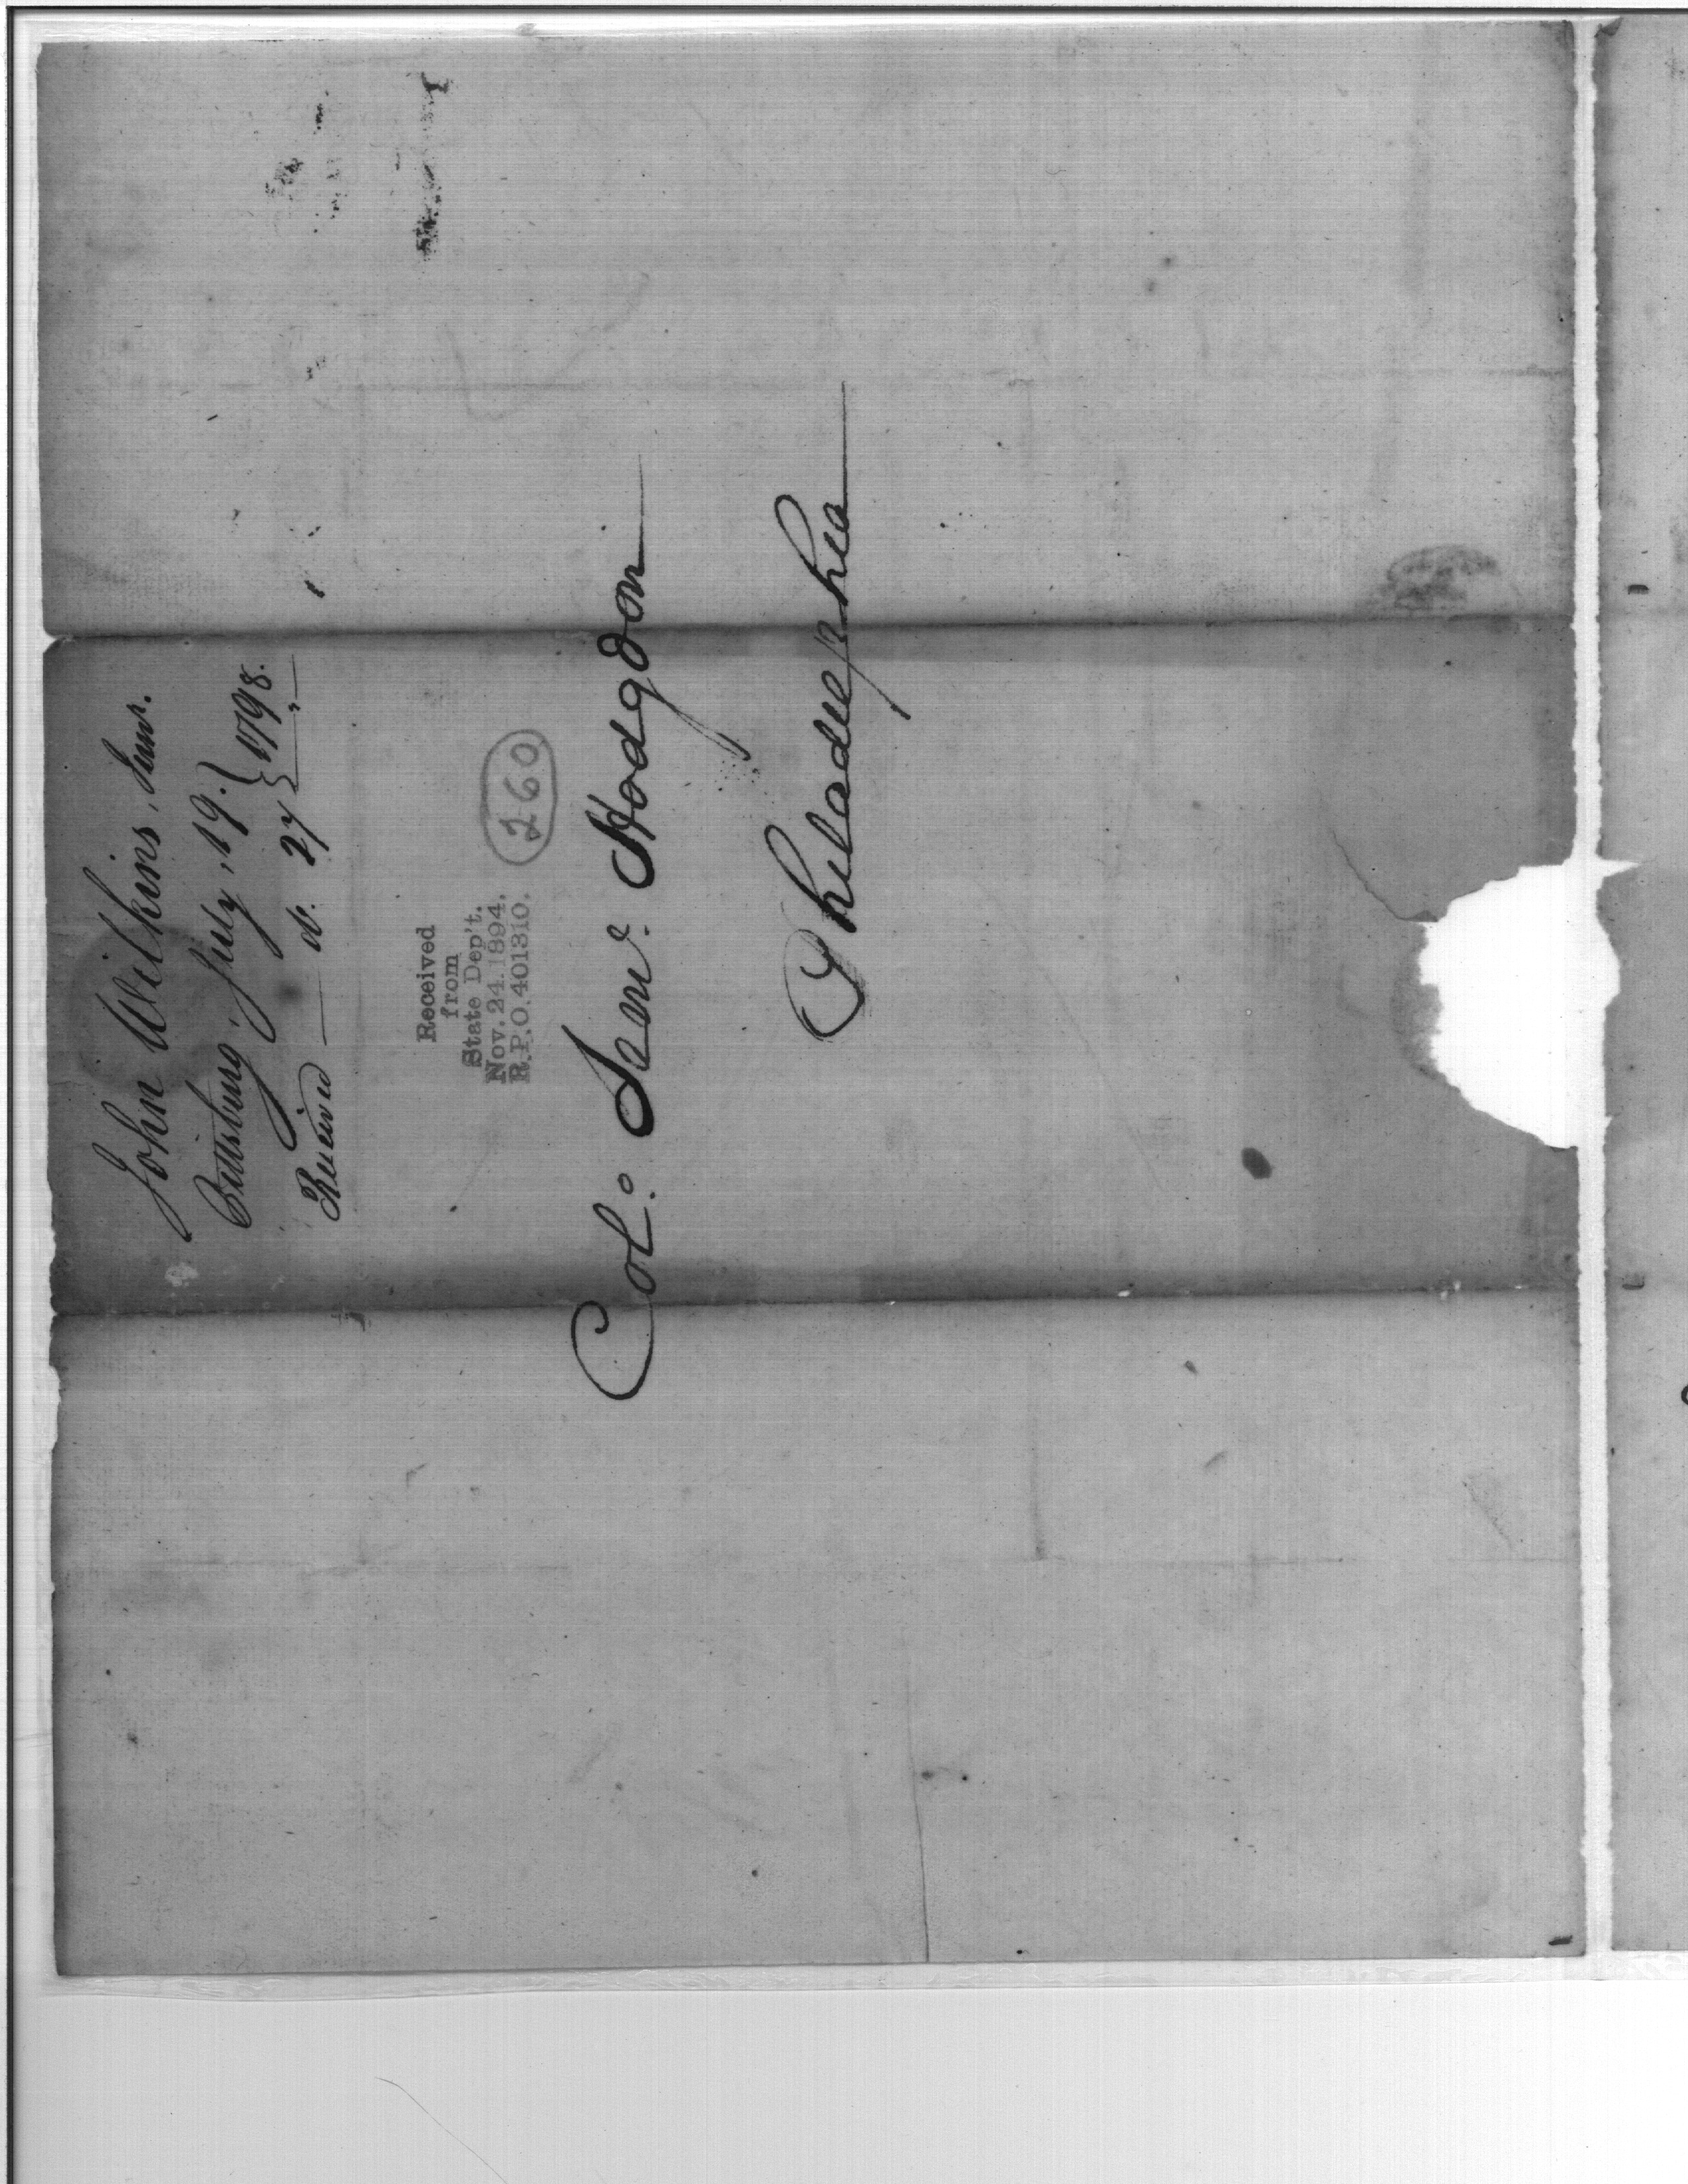 John Wilkins, Junr.
Pittsburg. July, 19. } 1798.
Received — do. 27 }
Received
from
State Dep't.
Nov. 24. 1894.
R.P.O. 401310.
260
Col:o Sam.l Hodgdon
Philadelphia